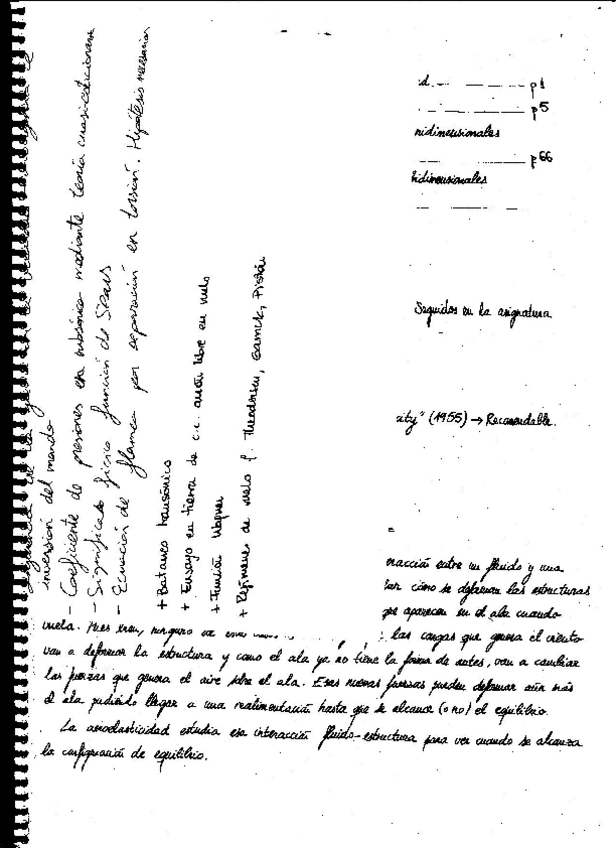 inversión del mando
- Coeficiente de presiones en subsónico mediante teoría cuasi-estacionaria
- Significado físico función de Sears
- Ecuación de flameo por separación en torsión. Hipótesis necesarias
+ Bataneo transónico
+ Ensayo en tierra de c.c. avión libre en vuelo
+ Función Wagner
+ Regímenes de vuelo f. Theodorsen, Garrick, Pistón
p1
p5
nidimensionales
p66
bidimensionales
Seguidos en la asignatura
sity" (1955) → Recomendable.
eracción entre un fluido y una
cómo se deforman las estructuras
que aparecen en el ala cuando
vuela. Pues bien, ninguno las cargas que genera el viento
van a deformar la estructura y como el ala ya no tiene la forma de antes, van a cambiar
las fuerzas que genera el aire sobre el ala. Esas nuevas fuerzas pueden deformar aún más
el ala pudiendo llegar a una realimentación hasta que se alcance (o no) el equilibrio.
La aeroelasticidad estudia esa interacción fluido-estructura para ver cuando se alcanza
la configuración de equilibrio.